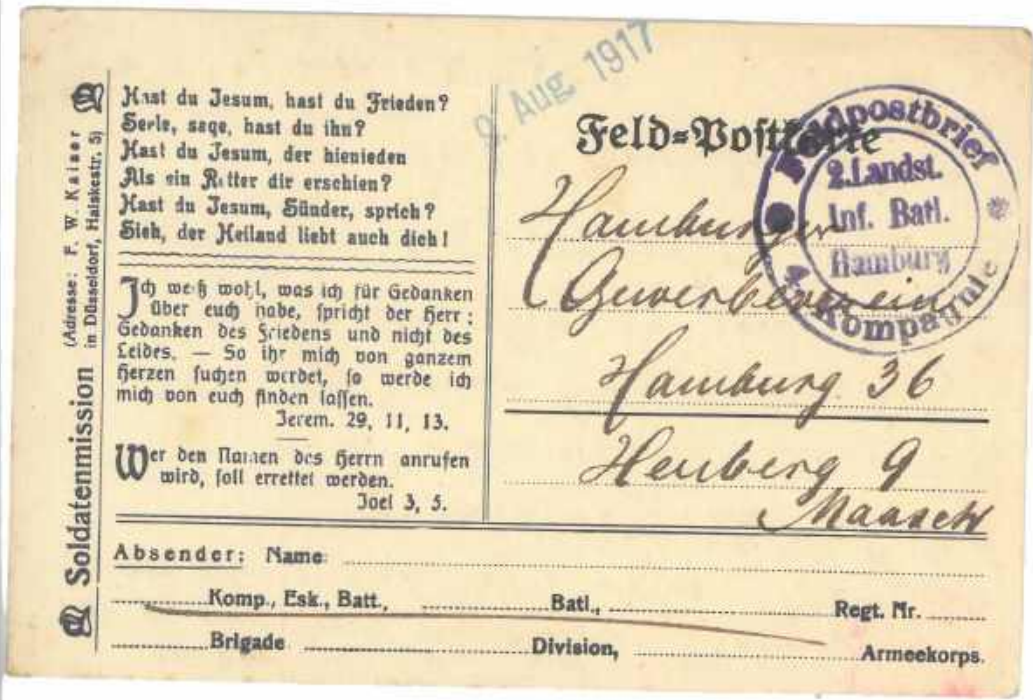 Soldatenmission (Adresse: F. W. Kaiser
in Düsseldorf, Halskestr. 5)
Hast du Jesum, hast du Frieden?
Seele, sage, hast du ihn?
Hast du Jesum, der hienieden
Als ein Ritter dir erschien?
Hast du Jesum, Sünder, sprich?
Sieh, der Heiland liebt auch dich!
Ich weiß wohl, was ich für Gedanken
über euch habe, spricht der Herr:
Gedanken des Friedens und nicht des
Leides. — So ihr mich von ganzem
Herzen suchen werdet, so werde ich
mich von euch finden lassen.
Jerem. 29, 11, 13.
Wer den Namen des Herrn anrufen
wird, soll errettet werden.
Joel 3, 5.
9. Aug. 1917
Feld=Postkarte
Feldpostbrief
2. Landst.
Inf. Batl.
Hamburg
4. Kompagnie
Hamburger
Gewerbeverein
Hamburg 36
Heuberg 9
Maasch
Absender: Name:
Komp., Esk., Batt., Batl., Regt. Nr.
Brigade Division, Armeekorps.